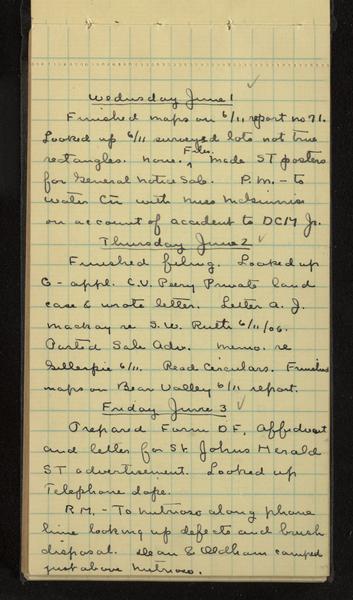 Wednesday June 1
Finished maps on 6/11 report no 71.
Looked up 6/11 surveyed lots not true
Files.
rectangles. none. ^ made ST posters
for General Notice Sale. P.M. - to
Water Cn with Miss
on account of accident to DCM Jr.
Thursday June 2
Finished filing. Looked up
G - appl. C.V. Peery Private land
case & wrote letter. Letter A. J.
Mackay re S.W. Ruth 6/11/06.
Posted Sale Adv. memo. re
Gillespie 6/11. Read Circulars. Finished
maps on Bear Valley 6/11 report.
Friday June 3
Prepared Form DF, Affidavit
and letter for St Johns Herald
ST advertisement. Looked up
Telephone dope.
P.M. - To Nutrioso along phone
line looking up defects and brush
disposal. Dean & Oldham camped
just above Nutrioso.